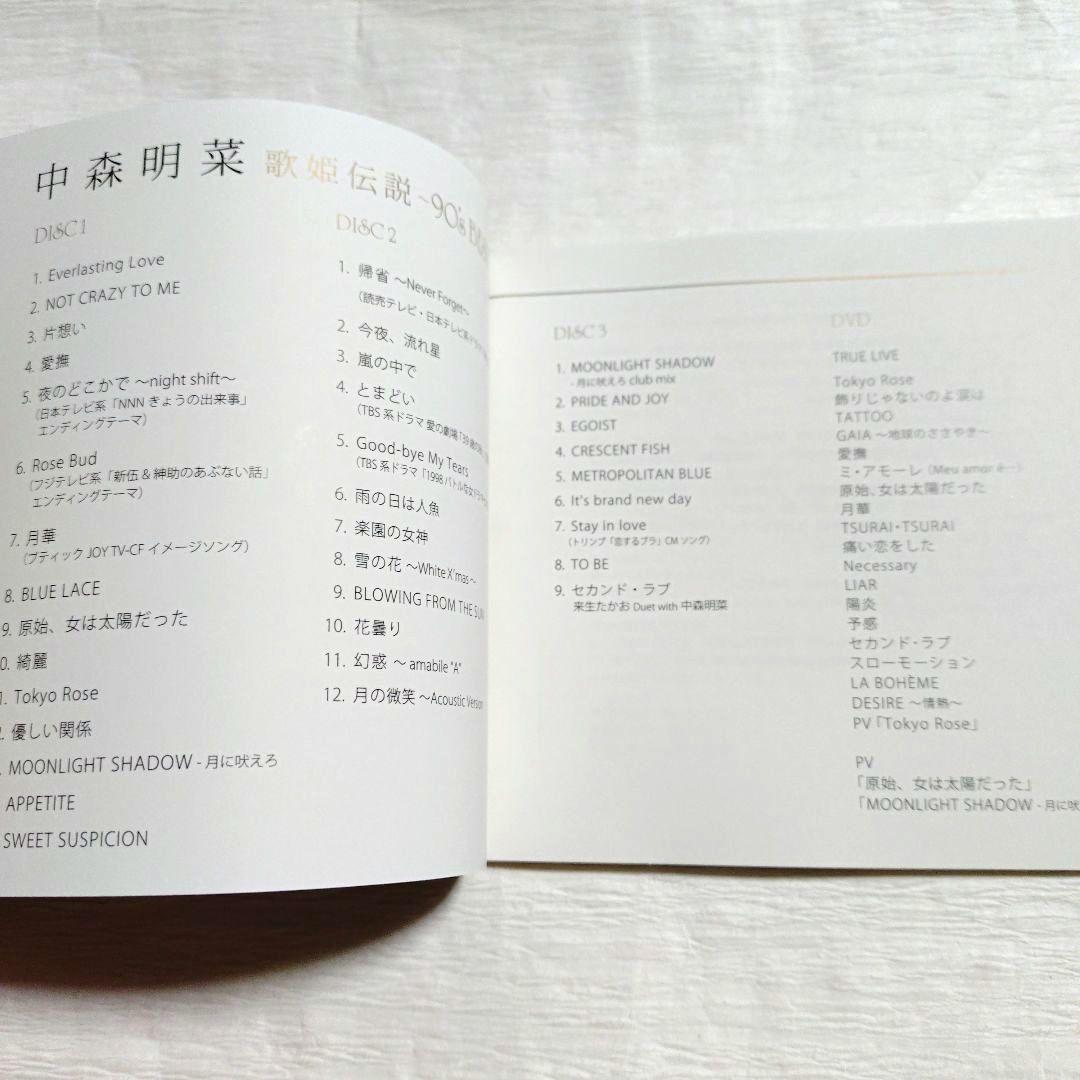 中森明菜 歌姫伝説 ~90's
DISC 1
1. Everlasting Love
2. NOT CRAZY TO ME
3. 片想い
4. 愛撫
5. 夜のどこかで ～night shift～
（日本テレビ系「NNN きょうの出来事」
エンディングテーマ）
6. Rose Bud
（フジテレビ系「新伍 & 紳助のあぶない話」
エンディングテーマ）
7. 月華
（ブティック JOY TV-CF イメージソング）
8. BLUE LACE
9. 原始、女は太陽だった
0. 綺麗
1. Tokyo Rose
2. 優しい関係
. MOONLIGHT SHADOW - 月に吠えろ
APPETITE
SWEET SUSPICION
DISC 2
1. 帰省 ～Never Forget～
（読売テレビ・日本テレビ系
2. 今夜、流れ星
3. 嵐の中で
4. とまどい
（TBS 系ドラマ 愛の劇場
5. Good-bye My Tears
（TBS 系ドラマ「1998 バトルな女
6. 雨の日は人魚
7. 楽園の女神
8. 雪の花 ～White X'mas～
9. BLOWING FROM THE SUN
10. 花曇り
11. 幻惑 ～ amabile "A"
12. 月の微笑 ～Acoustic Version
DISC 3
1. MOONLIGHT SHADOW
- 月に吠えろ club mix
2. PRIDE AND JOY
3. EGOIST
4. CRESCENT FISH
5. METROPOLITAN BLUE
6. It's brand new day
7. Stay in love
（トリンプ「恋するブラ」CM ソング）
8. TO BE
9. セカンド・ラブ
来生たかお Duet with 中森明菜
DVD
TRUE LIVE
Tokyo Rose
飾りじゃないのよ涙は
TATTOO
GAIA ～地球のささやき～
愛撫
ミ・アモーレ（Meu amor é…）
原始、女は太陽だった
月華
TSURAI・TSURAI
痛い恋をした
Necessary
LIAR
陽炎
予感
セカンド・ラブ
スローモーション
LA BOHÈME
DESIRE ～情熱～
PV「Tokyo Rose」
PV
「原始、女は太陽だった」
「MOONLIGHT SHADOW - 月に吠